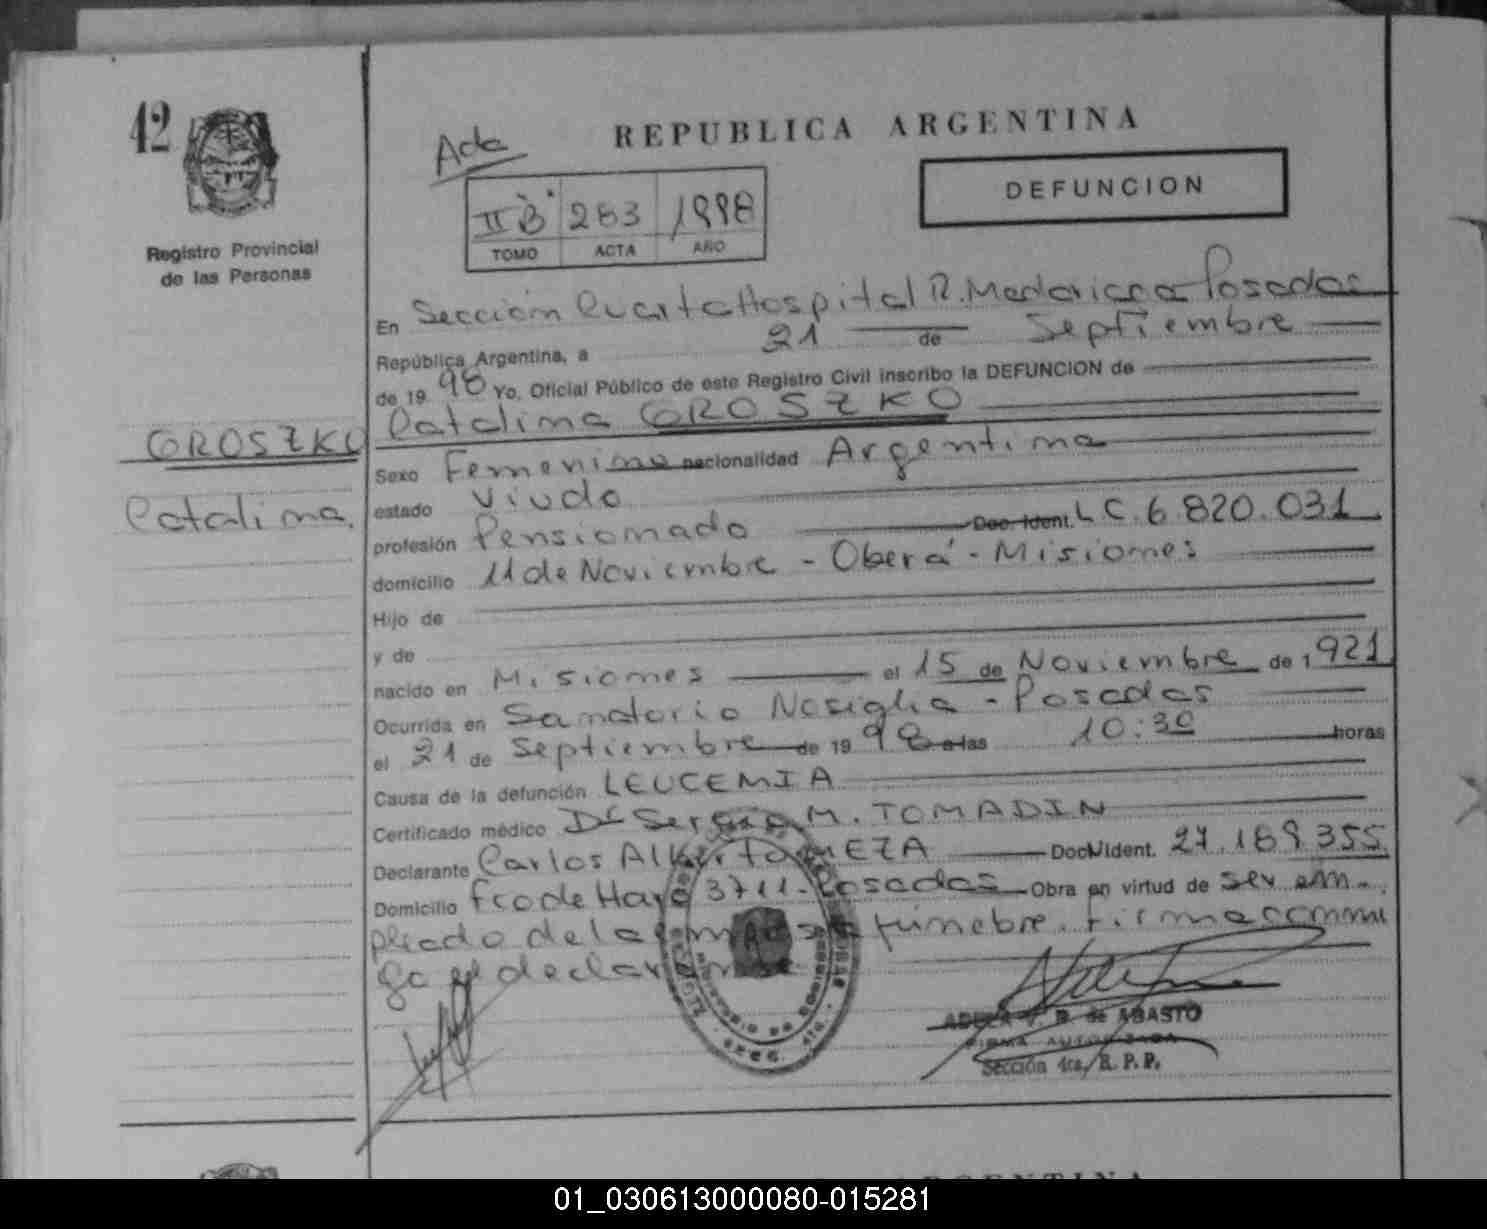 42
REPUBLICA ARGENTINA
Acta
DEFUNCION
II B 263 1998
TOMO ACTA AÑO
Registro Provincial
de las Personas
En Sección Cuarta Hospital R. Madariaga Posadas
República Argentina, a 21 de Septiembre
de 19 98 Yo, Oficial Público de este Registro Civil inscribo la DEFUNCION de
Catalina GROSZKO
GROSZKO
Catalina.
Sexo Femenino nacionalidad Argentina
estado Viuda
profesión Pensionada Doc. Ident. L C. 6 820.031
domicilio 11 de Noviembre - Oberá - Misiones
Hijo de
y de
nacido en Misiones el 15 de Noviembre de 1921
Ocurrida en Sanatorio Nosiglia - Posadas
el 21 de Septiembre de 19 98 a las 10:30 horas
Causa de la defunción LEUCEMIA
Certificado médico Dr Sergio M. TOMADIN
Declarante Carlos Alberto MEZA Doc. Ident. 27.189.355
Domicilio Fco de Haro 3711 - Posadas Obra en virtud de ser em-
pleado de la empresa fúnebre. Firma conmi
go el declarante
de ABASTO
FIRMA AUTORIZADA
Sección 4ta. R. P. P.
ARGENTINA
01_030613000080-015281